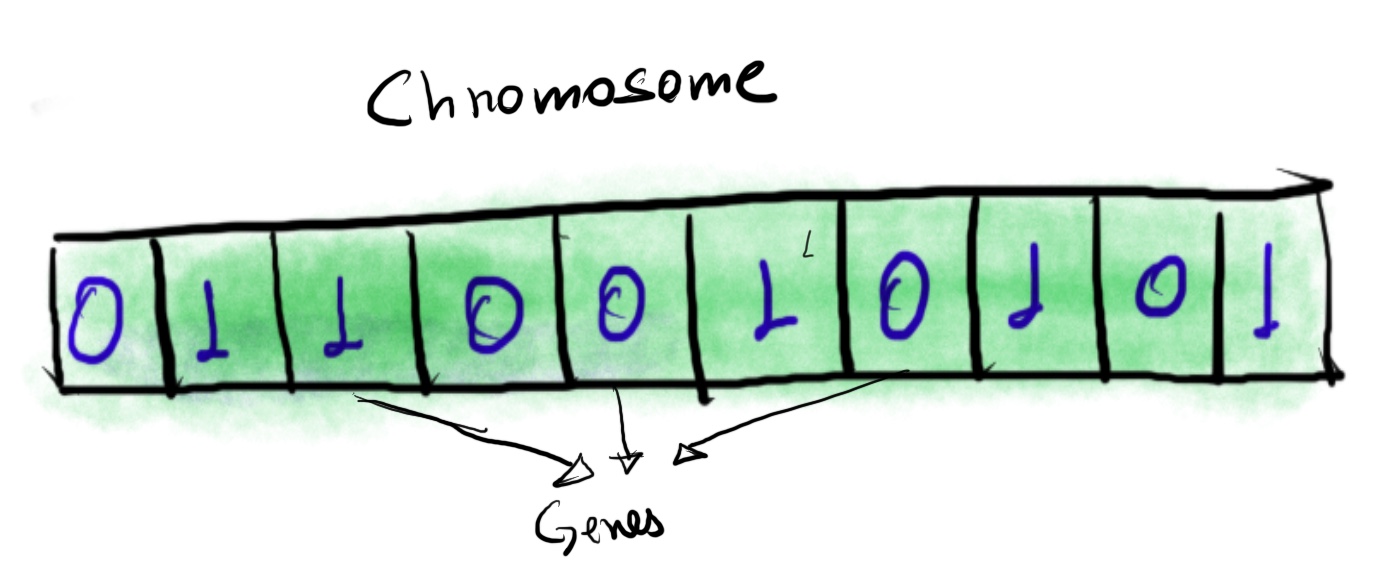 Chromosome
0 1 1 0 0 1 0 1 0 1
Genes